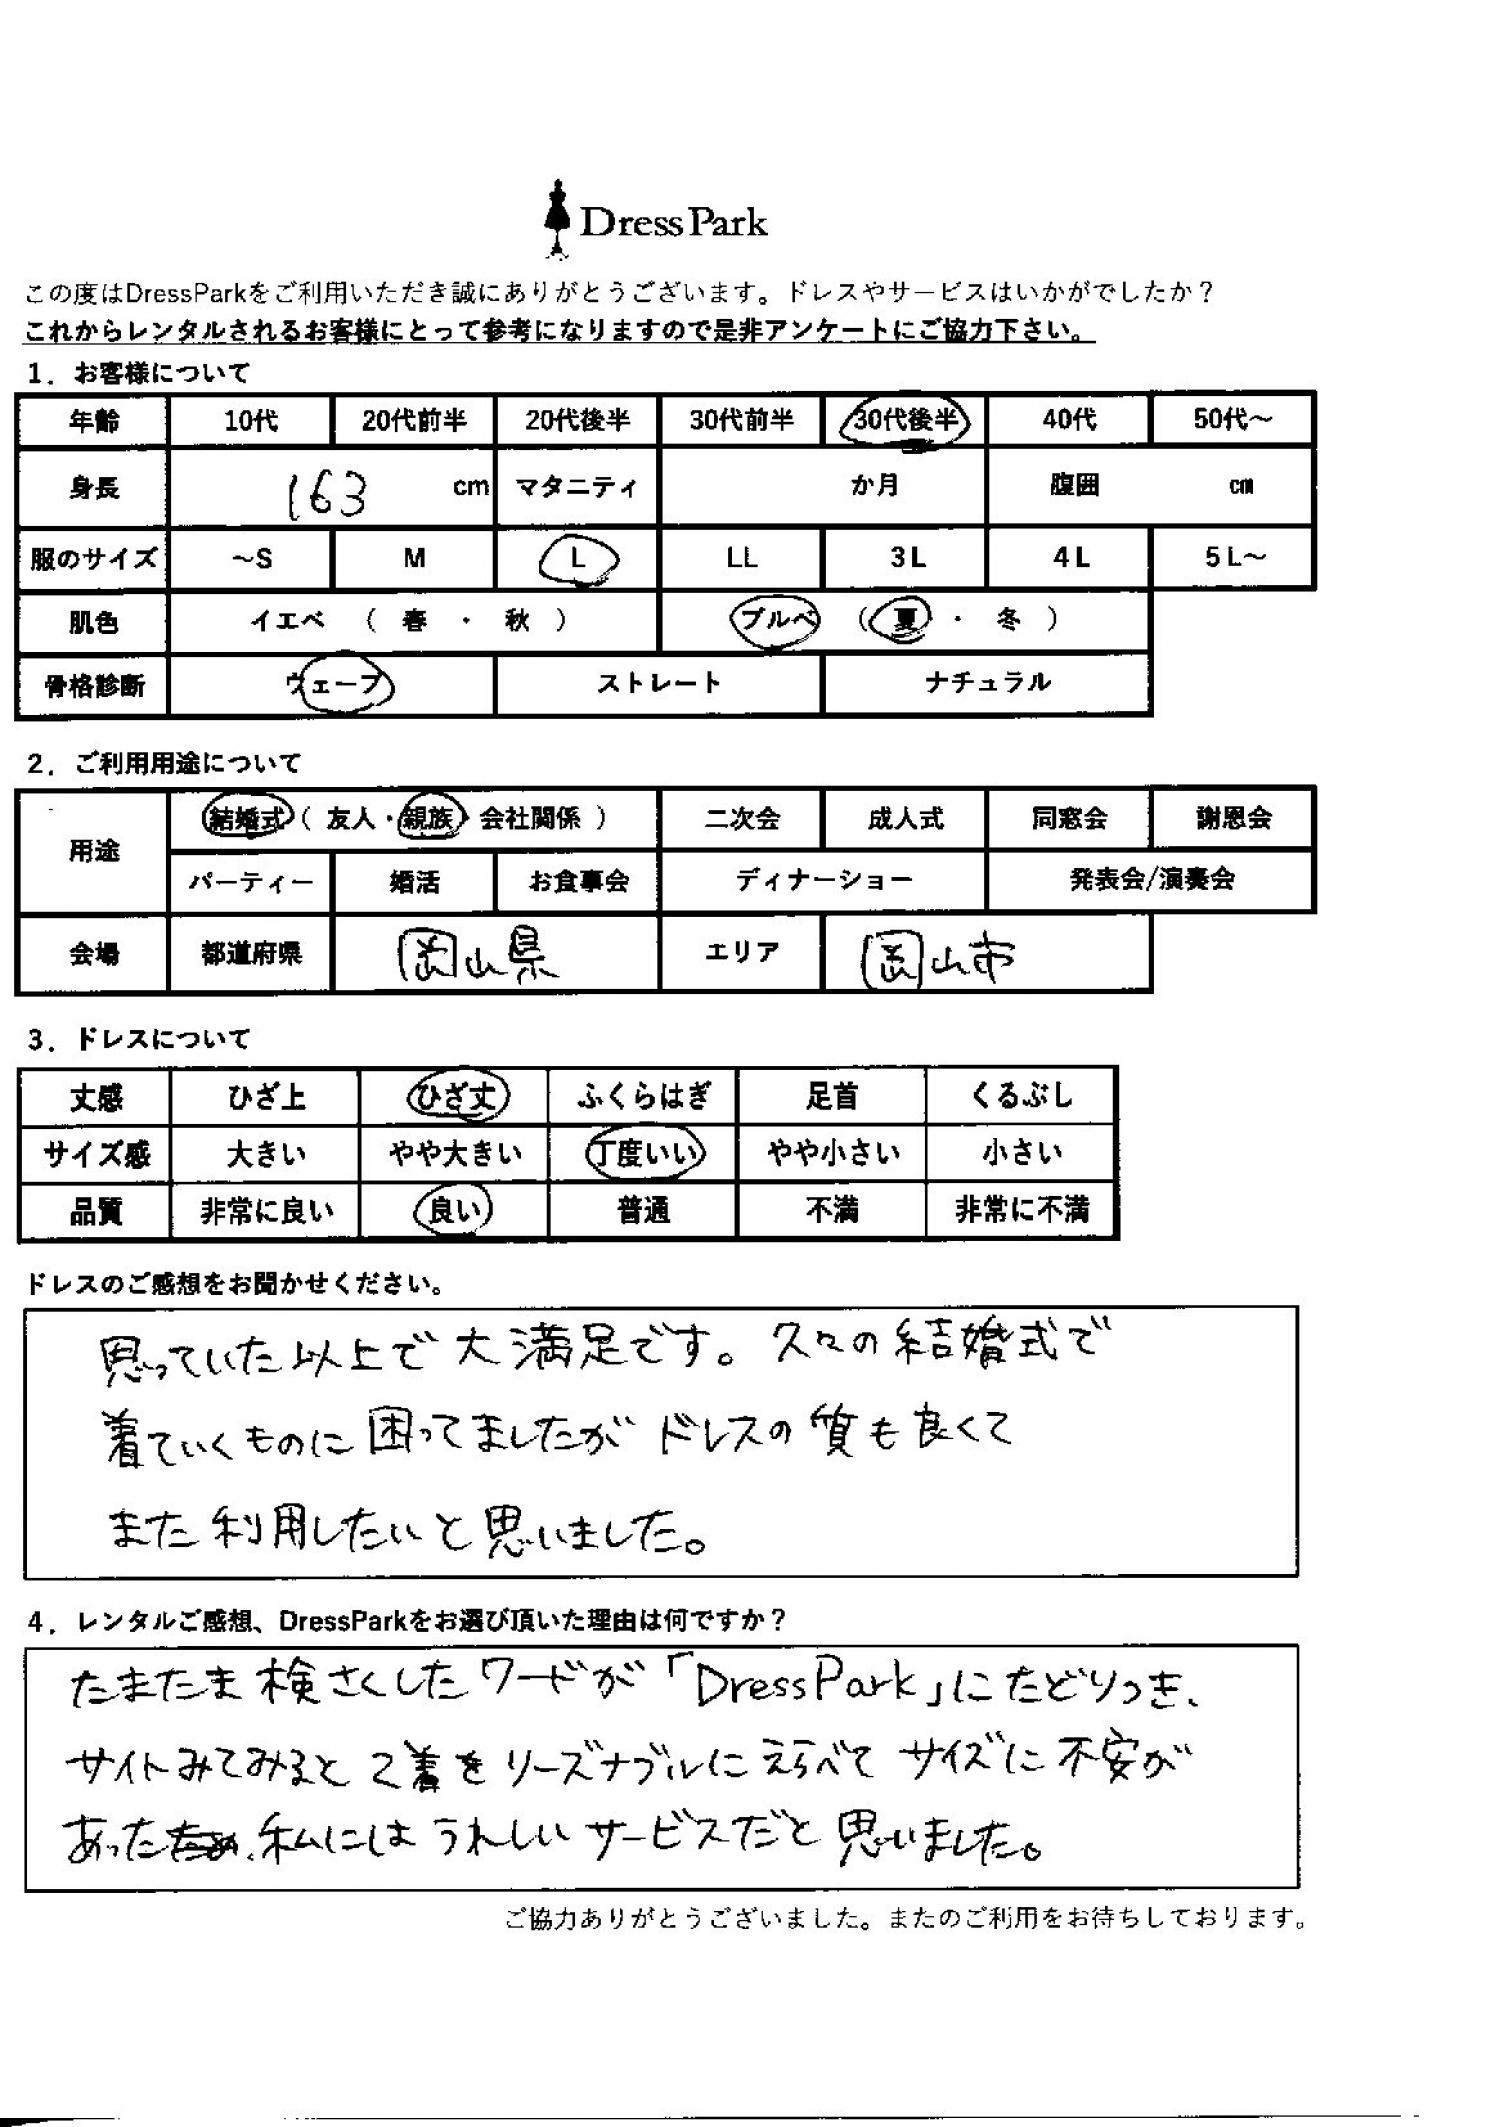 DressPark
この度はDressParkをご利用いただき誠にありがとうございます。ドレスやサービスはいかがでしたか？
これからレンタルされるお客様にとって参考になりますので是非アンケートにご協力下さい。
1．お客様について
年齢 10代 20代前半 20代後半 30代前半 30代後半 40代 50代～
身長 163 cm マタニティ か月 腹囲 cm
服のサイズ ～S M L LL 3L 4L 5L～
肌色 イエベ （ 春 ・ 秋 ） ブルベ （ 夏 ・ 冬 ）
骨格診断 ウェーブ ストレート ナチュラル
2．ご利用用途について
用途 結婚式（ 友人・親族・会社関係 ） 二次会 成人式 同窓会 謝恩会
パーティー 婚活 お食事会 ディナーショー 発表会/演奏会
会場 都道府県 岡山県 エリア 岡山市
3．ドレスについて
丈感 ひざ上 ひざ丈 ふくらはぎ 足首 くるぶし
サイズ感 大きい やや大きい 丁度いい やや小さい 小さい
品質 非常に良い 良い 普通 不満 非常に不満
ドレスのご感想をお聞かせください。
思っていた以上で大満足です。久々の結婚式で
着ていくものに困ってましたがドレスの質も良くて
また利用したいと思いました。
4．レンタルご感想、DressParkをお選び頂いた理由は何ですか？
たまたま検さくしたワードが「DressPark」にたどりつき、
サイトみてみると2着をリーズナブルにえらべてサイズに不安が
あったため、私にはうれしいサービスだと思いました。
ご協力ありがとうございました。またのご利用をお待ちしております。